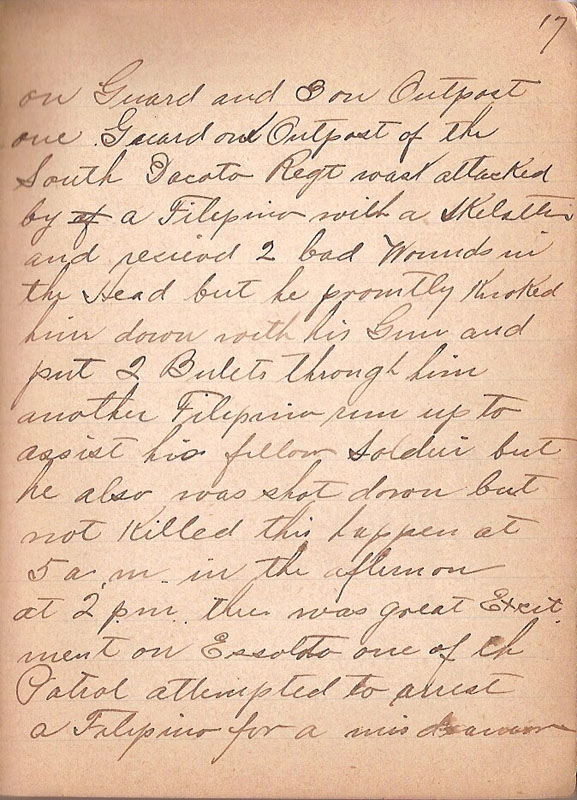 17
on Guard and 3 on Outpost
one Guard on Outpost of the
South Dacoto Regt was attacked
by a Filipino with a
and recieved 2 bad Wounds in
the Head but he promtly Knoked
him down with his Gun and
put 2 Bulets through him
another Filipino run up to
assist his fellow Soldier but
he also was shot down but
not Killed this happen at
5 a.m. in the afternon
at 2 p.m. ther was great Excit
ment on Essolto one of th
Patrol attempted to arrest
a Filipino for a mis